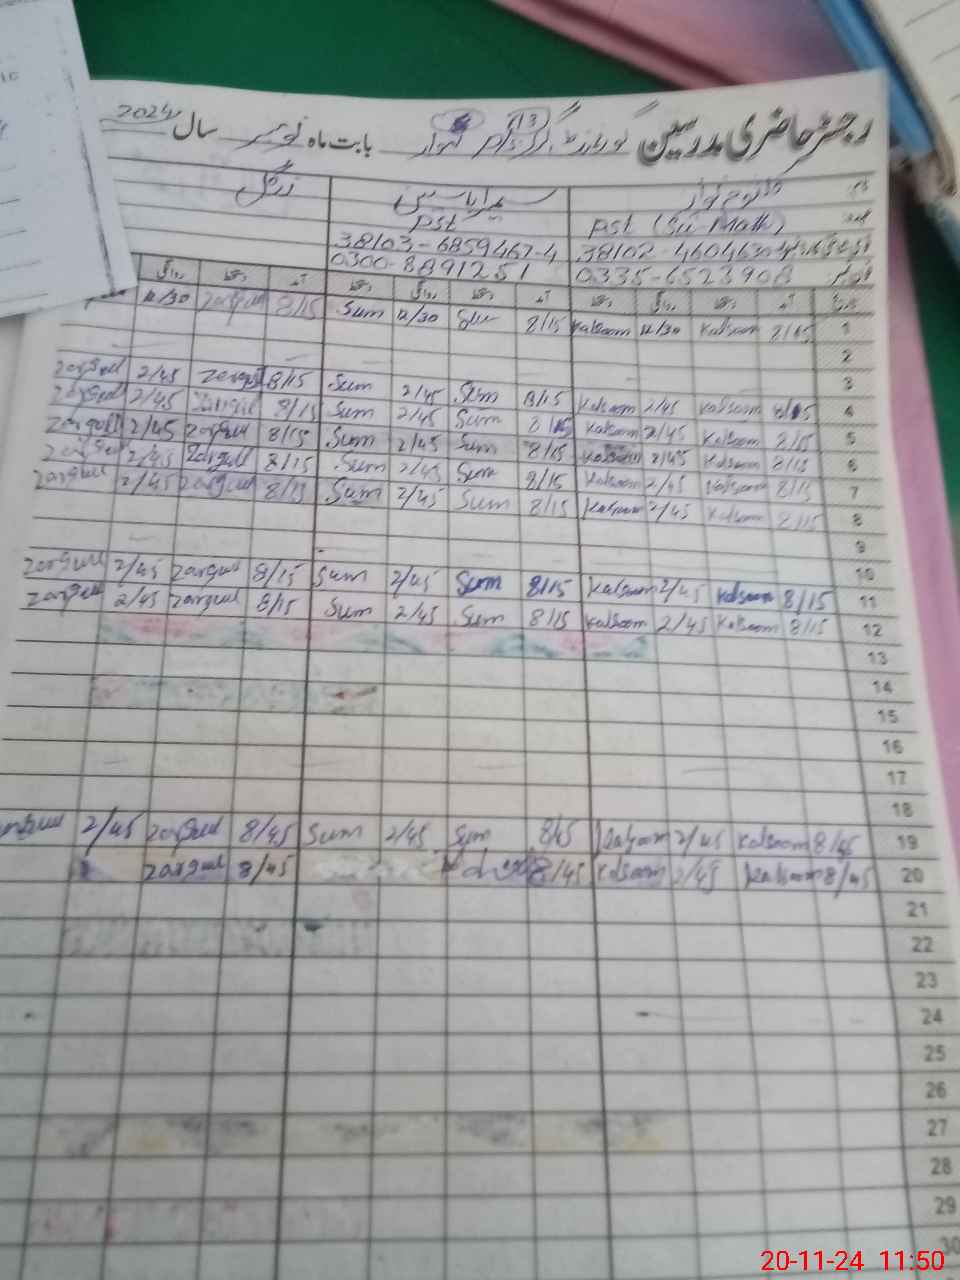 رجسٹر حاضری مدرسین گورنمنٹ بابت ماہ نومبر سال 2024
زرگل
pst pst (Sci-Math)
38103-6859467-4
0300-8891251 0335-6523908
12/30 zargul 8/15 Sum 12/30 Sum 8/15 Kalsoom 12/30 Kalsoom 8/15 1
2
3
zargul 2/45 zargul 8/15 Sum 2/45 Sum 8/15 Kalsoom 2/45 Kalsoom 8/15 4
zargul 2/45 zargul 8/15 Sum 2/45 Sum 8/15 Kalsoom 2/45 Kalsoom 8/15 5
zargul 2/45 zargul 8/15 Sum 2/45 Sum 8/15 Kalsoom 2/45 Kalsoom 8/15 6
zargul 2/45 zargul 8/15 Sum 2/45 Sum 8/15 Kalsoom 2/45 Kalsoom 8/15 7
zargul 2/45 zargul 8/15 Sum 2/45 Sum 8/15 Kalsoom 2/45 Kalsoom 8/15 8
9
10
zargul 2/45 zargul 8/15 Sum 2/45 Sum 8/15 Kalsoom 2/45 Kalsoom 8/15 11
zargul 2/45 zargul 8/15 Sum 2/45 Sum 8/15 Kalsoom 2/45 Kalsoom 8/15 12
13
14
15
16
17
18
zargul 2/45 zargul 8/45 Sum 2/45 Sum 8/45 Kalsoom 2/45 Kalsoom 8/45 19
zargul 8/45 8/45 Kalsoom 2/45 Kalsoom 8/45 20
21
22
23
24
25
26
27
28
29
30
20-11-24 11:50